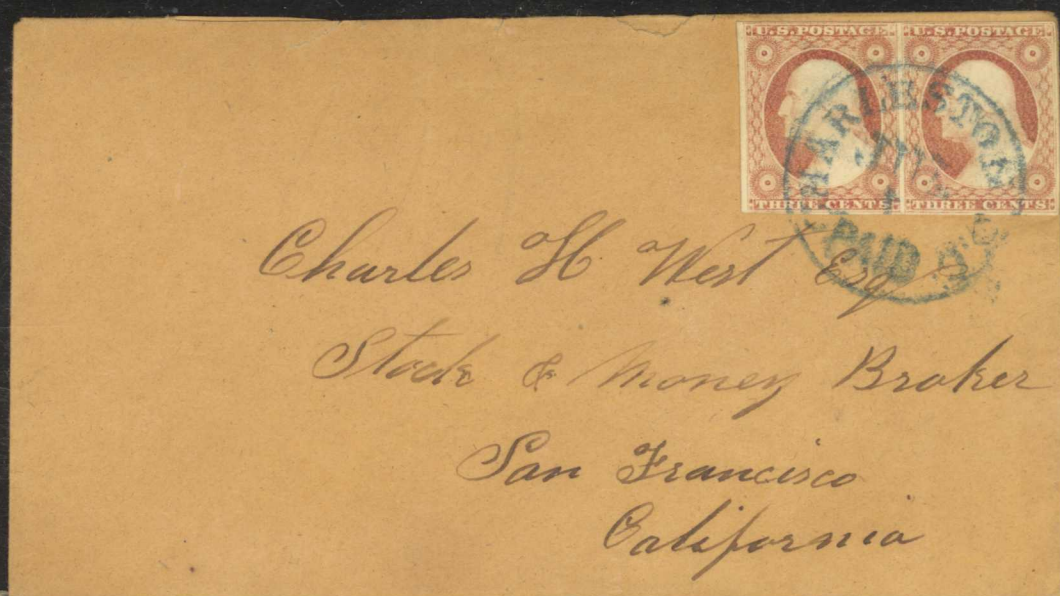 U.S. POSTAGE U.S. POSTAGE
THREE CENTS THREE CENTS
CHARLESTON
PAID
Charles H West Esq
Stock & Money Broker
San Francisco
California